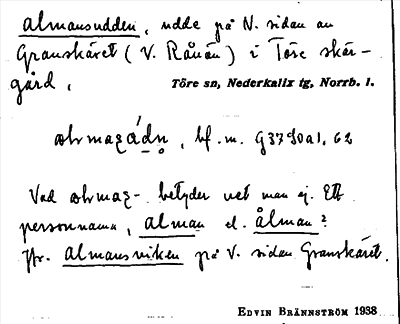 almansudden, udde på N. sidan av
Granskäret (V. Rånön) i Töre skär-
gård,
Töre sn, Nederkalix tg, Norrb. l.
bf. m. 9379 a1. 62
Vad betyder vet man ej. Ett
personnamn, alman el. ålman?
Jfr. almansviken på V. sidan Granskäret.
EDVIN BRÄNNSTRÖM 1938